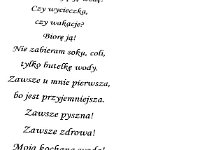 Czy wycieczka,
czy wakacje?
Biorę ją!
Nie zabieram soku, coli,
tylko butelkę wody.
Zawsze u mnie pierwsza,
bo jest przyjemniejsza.
Zawsze pyszna!
Zawsze zdrowa!
Moja kochana woda!